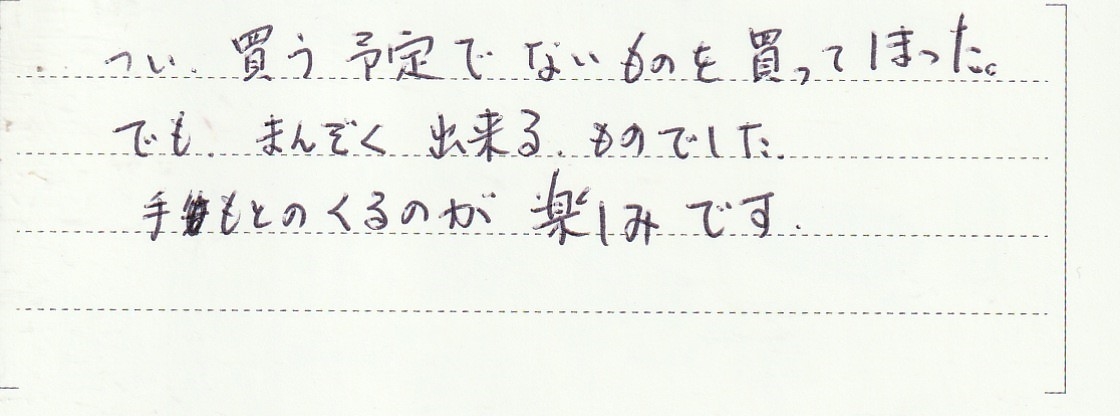 つい、買う予定でないものを買ってしまった。
でも、まんぞく出来る、ものでした。
手もとのくるのが楽しみです。